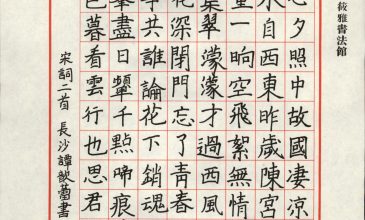 雅書法館
心夕照中故國淒涼
水自西東昨歲陳宮
量一晌空飛絮無情
葉翠濛濛才過西風
花深閉門忘了青春
事共誰論花下銷魂
峯盡日顰千點啼痕
色暮看雲行也思君
宋詞二首 長沙譚歆蕾書